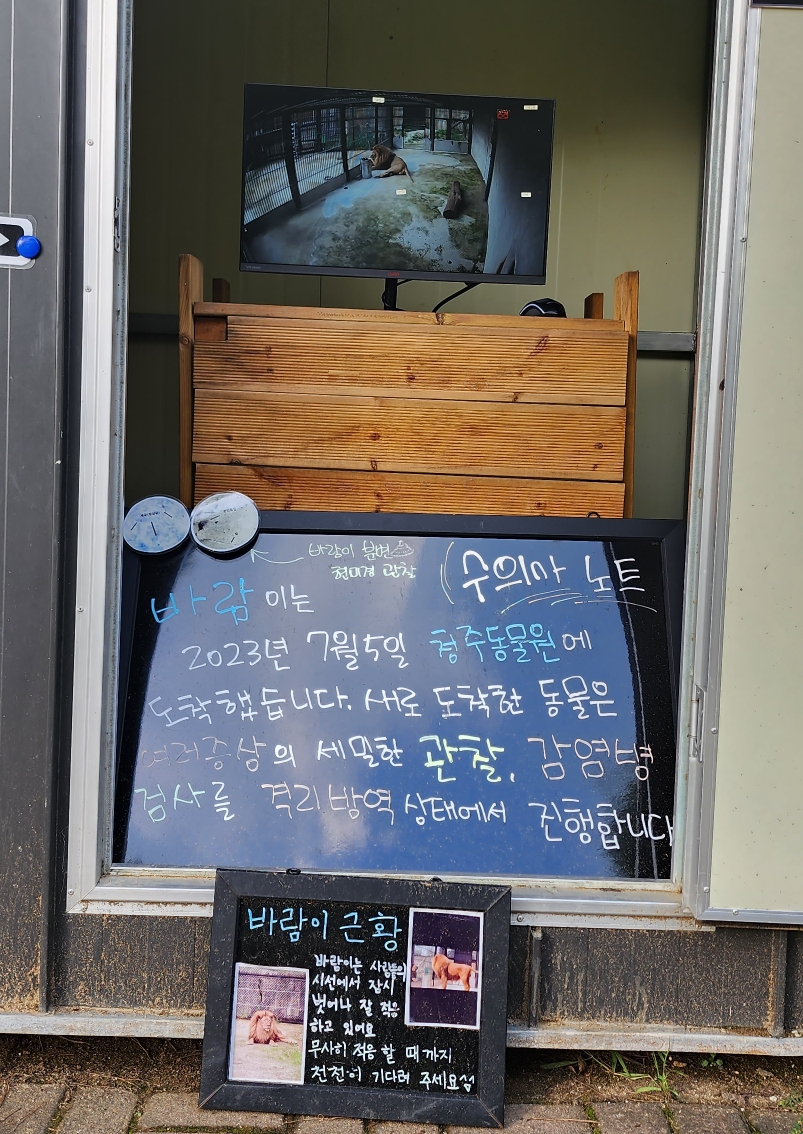 바람이 분변
현미경 관찰
수의사 노트
바람이는
2023년 7월 5일 청주동물원에
도착했습니다. 새로 도착한 동물은
여러증상의 세밀한 관찰, 감염병
검사를 격리방역 상태에서 진행합니다
바람이 근황
바람이는 사람들의
시선에서 잠시
벗어나 잘 적응
하고 있어요
무사히 적응 할 때 까지
천천히 기다려 주세요